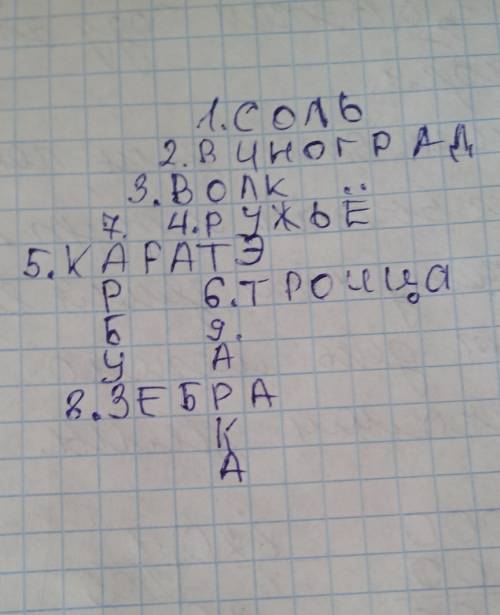 1.СОЛЬ
2.ВИНОГРАД
3.ВОЛК
7. 4.РУЖЬЁ
5.КАРАТЭ
Р 6.ТРОИЦА
Б 9.
У А
8.ЗЕБРА
К
А